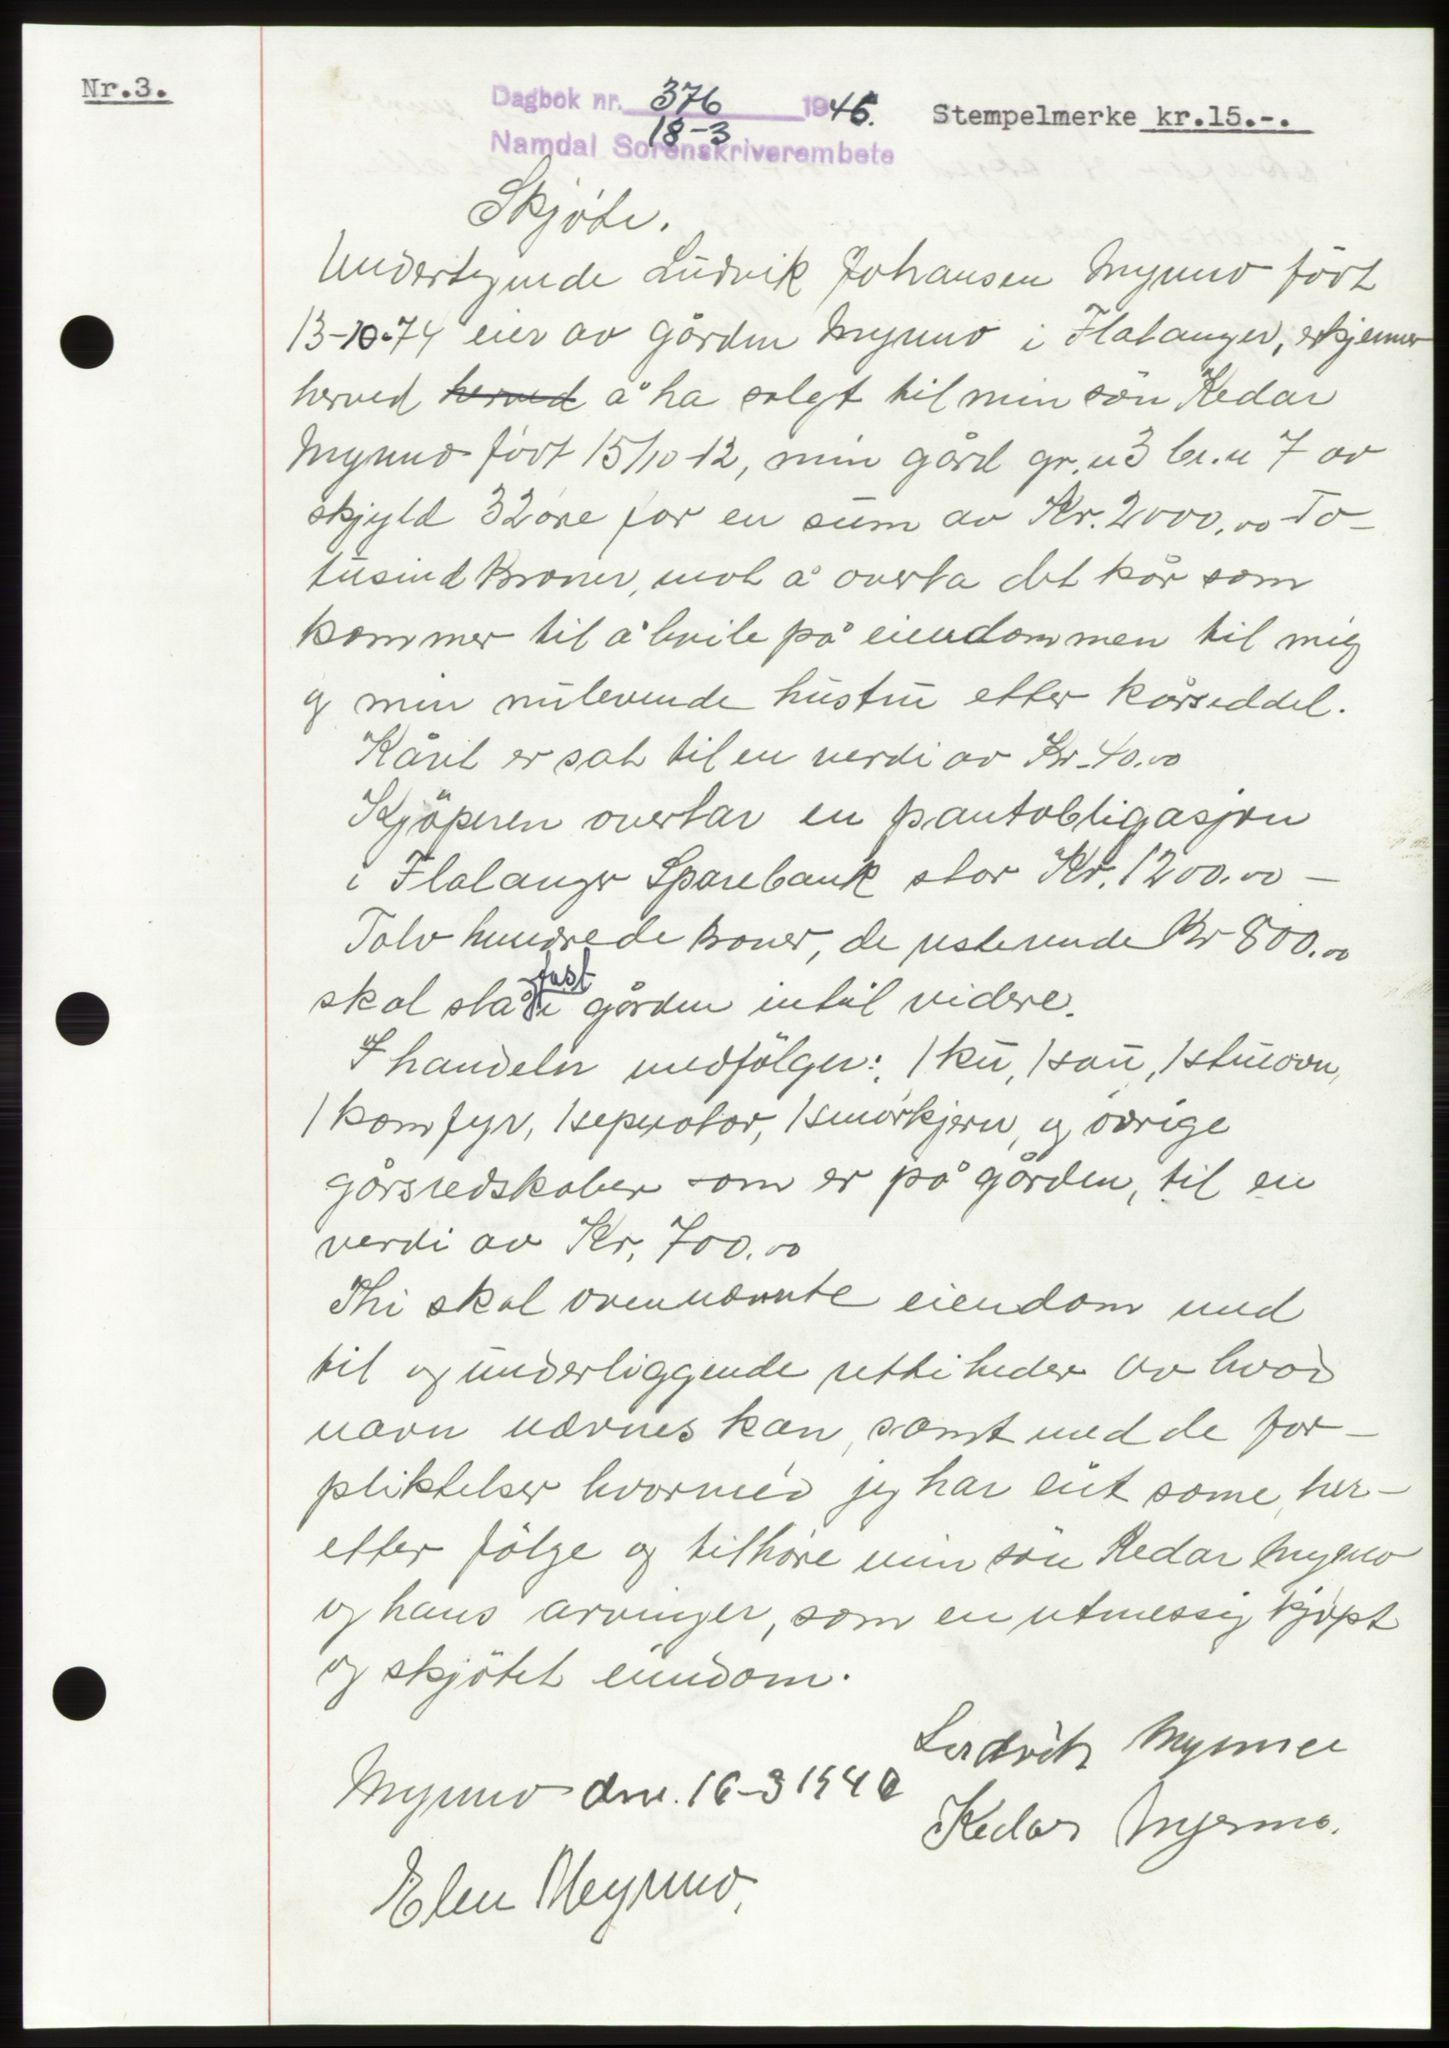 Nr.3.
Dagbok nr. 376 1946.
18-3
Namdal Sorenskriverembete
Stempelmerke kr.15.-.
Skjøte.
Undertegnede Ludvik Johansen Myrmo født
13-10-74 eier av gården Myrmo i Flatanger, erkjenner
herved herved å ha solgt til min søn Kedar
Myrmo født 15/10-12, min gård gr.n 3 br.n 7 av
skjyld 32 øre for en sum av Kr. 2000.00 To-
tusind kroner, mot å overta det kår som
kommer til å hvile på eiendommen til mig
og min nulevende hustru etter kårseddel.
Kåret er sat til en verdi av Kr. 40.00
Kjöperen overtar en pantobligasjon
i Flatanger Sparebank stor Kr. 1200.00 -
Tolv hundrede kroner, de resterende Kr 800.00
skal stå fast i gården intil videre.
I handelen medfölger: 1 ku, 1 sau, 1 stueovn,
1 komfyr, 1 seperator, 1 smörkjern, og övrige
gårsredskaber som er på gården, til en
verdi av Kr. 700.00
Thi skal ovennevnte eiendom med
til og underliggende rettiheder av hvad
navn nævnes kan, samt med de for-
pliktelser hvormed jeg har eiet same, her-
etter fölge og tilhøre min sön Kedar Myrmo
og hans arvinger, som en retmessig kjöpt
og skjötet eiendom.
Ludvik Myrmo
Myrmo den. 16-3 1946
Kedar Myrmo.
Elen Meyrmo.